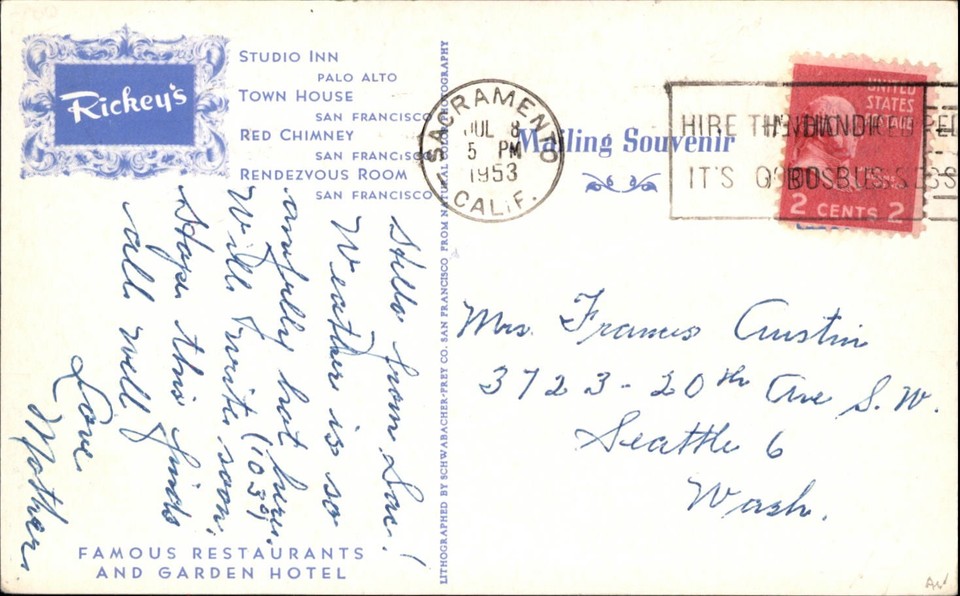 Rickey's
STUDIO INN
PALO ALTO
TOWN HOUSE
SAN FRANCISCO
RED CHIMNEY
SAN FRANCISCO
RENDEZVOUS ROOM
SAN FRANCISCO
Hello from Sac!
Weather is so
awfully hot here.
(103°)
Will write soon.
Hope this finds
all well
Love
Mother
FAMOUS RESTAURANTS
AND GARDEN HOTEL
LITHOGRAPHED BY SCHWABACHER-FREY CO. SAN FRANCISCO FROM NATURAL COLOR PHOTOGRAPHY
SACRAMENTO
JUL 8
5 PM
1953
CALIF.
Mailing Souvenir
HIRE THE
IT'S
UNITED
STATES
POSTAGE
2 CENTS 2
Mrs. Francis Austin
3723-20th Ave S.W.
Seattle 6
Wash.